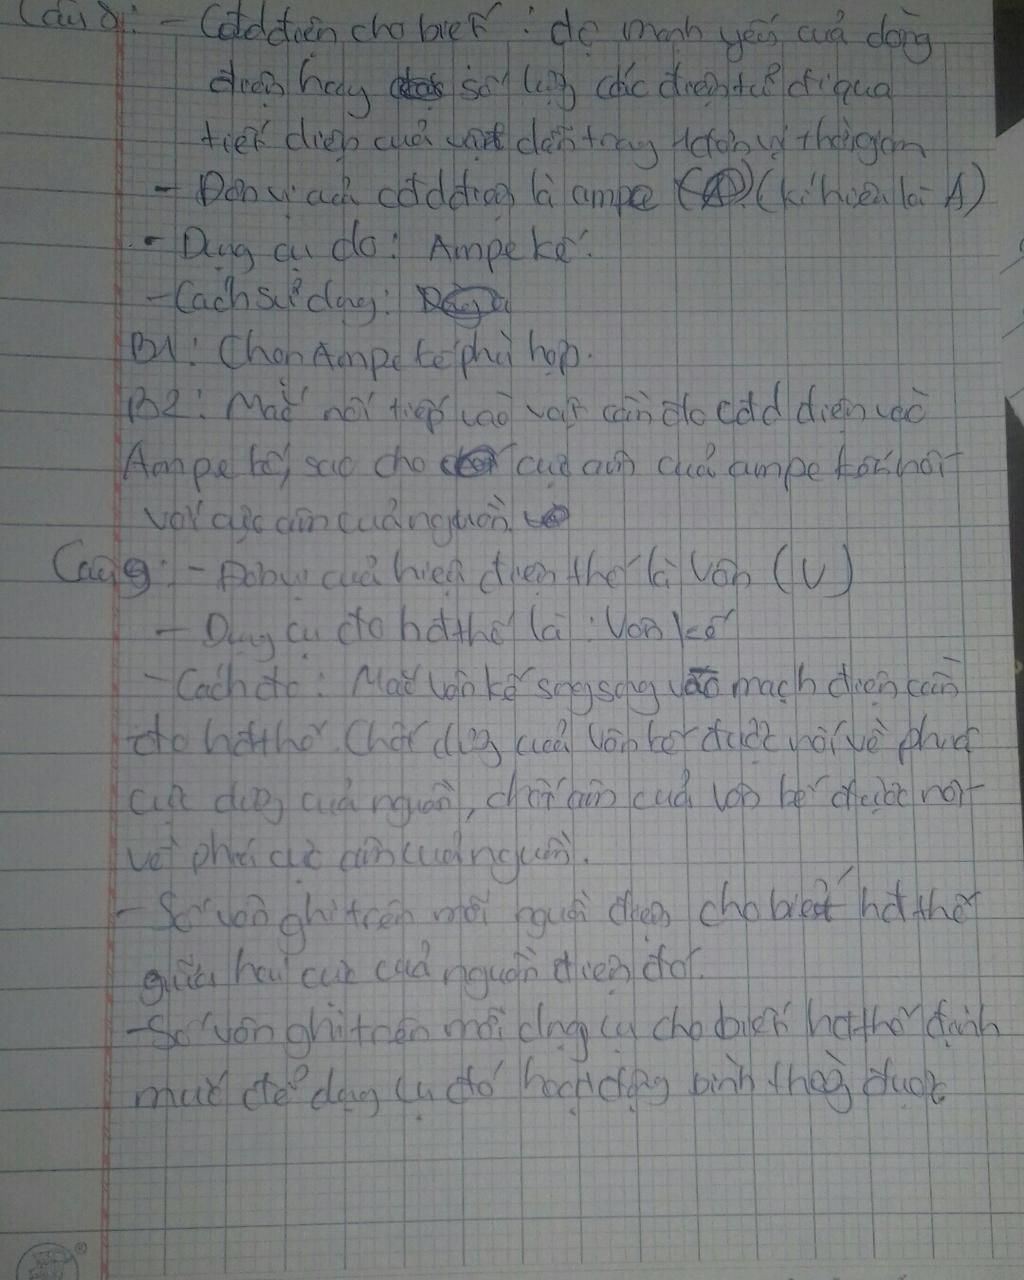 Câu 8: - Cđdđiện cho biết : độ mạnh yếu của dòng
điện hay số lượng các điện tử đi qua
tiết diện của vật dẫn trong 1 đơn vị thời gian
- Đơn vị của cđdđiện là ampe (kí hiệu là A)
- Dụng cụ đo: Ampe kế.
- Cách sử dụng:
B1: Chọn Ampe kế phù hợp.
B2: Mắc nối tiếp vào vật cần đo cđd điện với
Ampe kế, sao cho cực âm của ampe kế nối
với cực âm của nguồn.
Câu 9: - Đơn vị của hiệu điện thế là Vôn (V)
- Dụng cụ đo hđthế là : Vôn kế
- Cách đo: Mắc Vôn kế song song vào mạch điện cần
đo hđthế. Chốt dương của Vôn kế được nối về phía
cực dương của nguồn, chốt âm của vôn kế được nối
về phía cực âm của nguồn.
- Số vôn ghi trên mỗi nguồn điện cho biết hđthế
giữa hai cực của nguồn điện đó.
- Số vôn ghi trên mỗi dụng cụ cho biết hđthế định
mức để dụng cụ đó hoạt động bình thường được